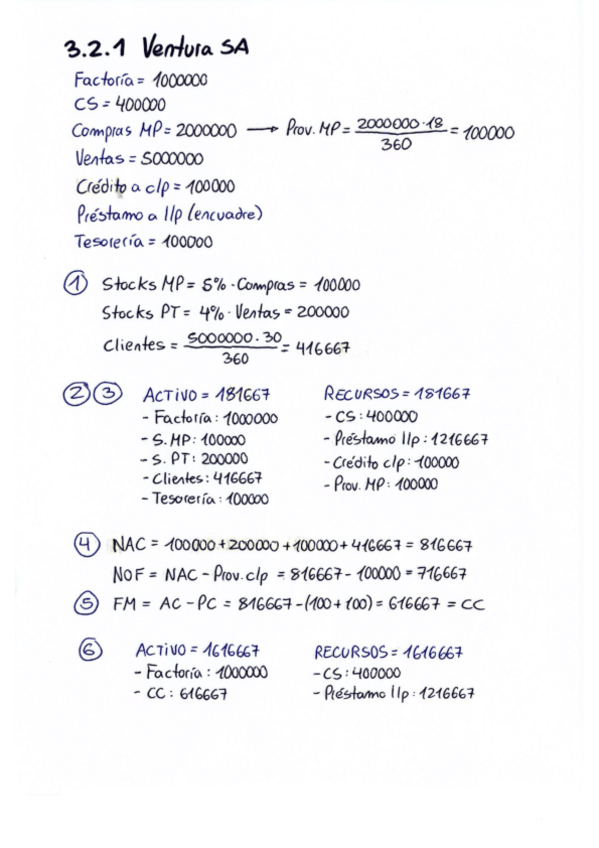 3.2.1 Ventura SA
Factoría = 1000000
CS = 400000
Compras MP = 2000000 → Prov. MP = 2000000·18 / 360 = 100000
Ventas = 5000000
Crédito a c/p = 100000
Préstamo a l/p (encuadre)
Tesorería = 100000
① Stocks MP = 5% · Compras = 100000
Stocks PT = 4% · Ventas = 200000
Clientes = 5000000·30 / 360 = 416667
②③ ACTIVO = 181667 RECURSOS = 181667
- Factoría: 1000000 - CS: 400000
- S. MP: 100000 - Préstamo l/p: 1216667
- S. PT: 200000 - Crédito c/p: 100000
- Clientes: 416667 - Prov. MP: 100000
- Tesorería: 100000
④ NAC = 100000 + 200000 + 100000 + 416667 = 816667
NOF = NAC - Prov. c/p = 816667 - 100000 = 716667
⑤ FM = AC - PC = 816667 - (100 + 100) = 616667 = CC
⑥ ACTIVO = 1616667 RECURSOS = 1616667
- Factoría: 1000000 - CS: 400000
- CC: 616667 - Préstamo l/p: 1216667